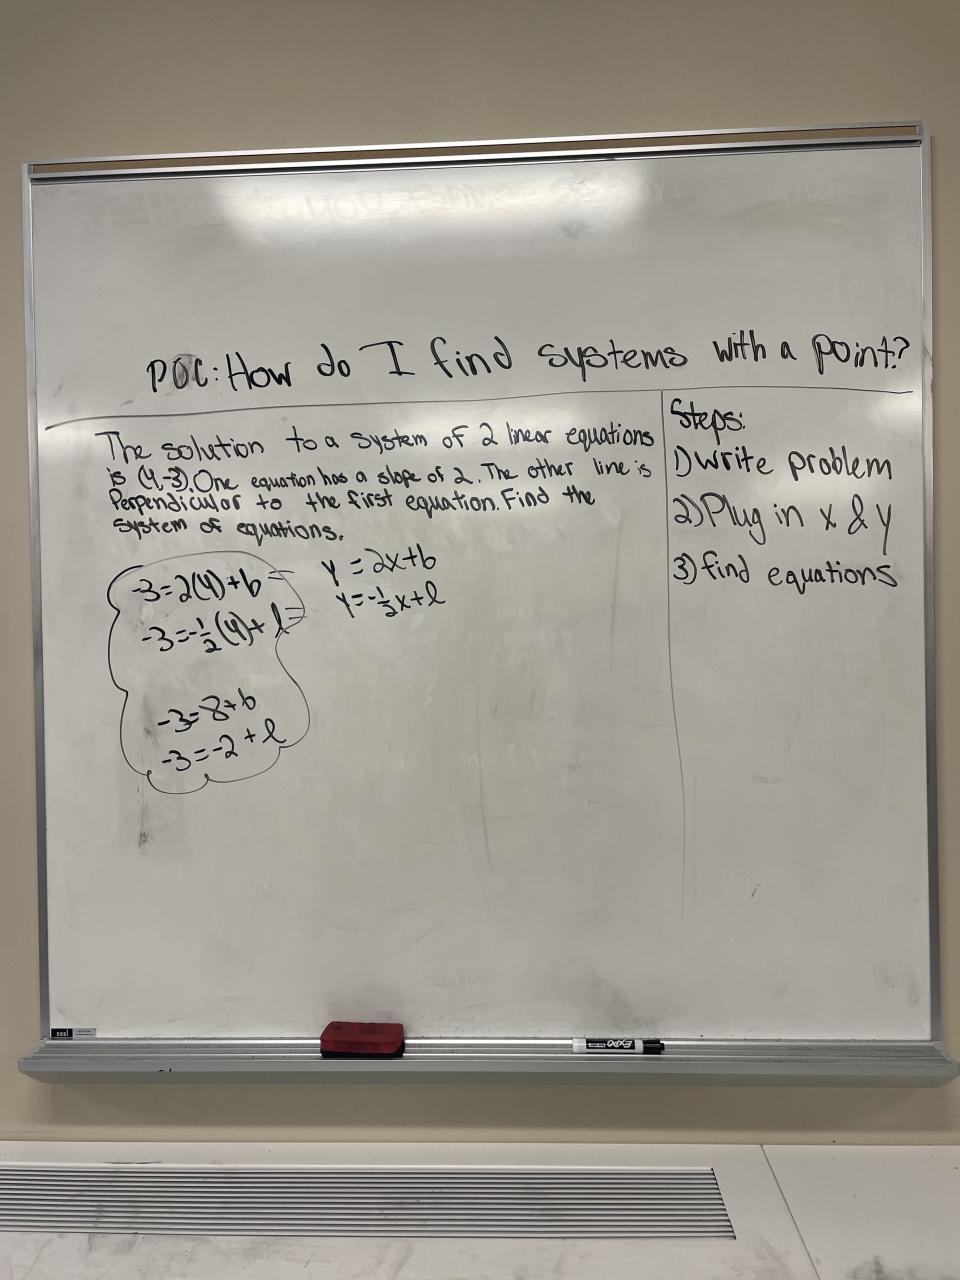 POC: How do I find systems with a point?
The solution to a system of 2 linear equations
is (4,-3). One equation has a slope of 2. The other line is
Perpendicular to the first equation. Find the
system of equations.
y = 2x+b
y=-1/2x+l
-3=2(4)+b
-3=-1/2(4)+l
-3=8+b
-3=-2+l
Steps:
1) write problem
2) Plug in x & y
3) find equations
EXPO